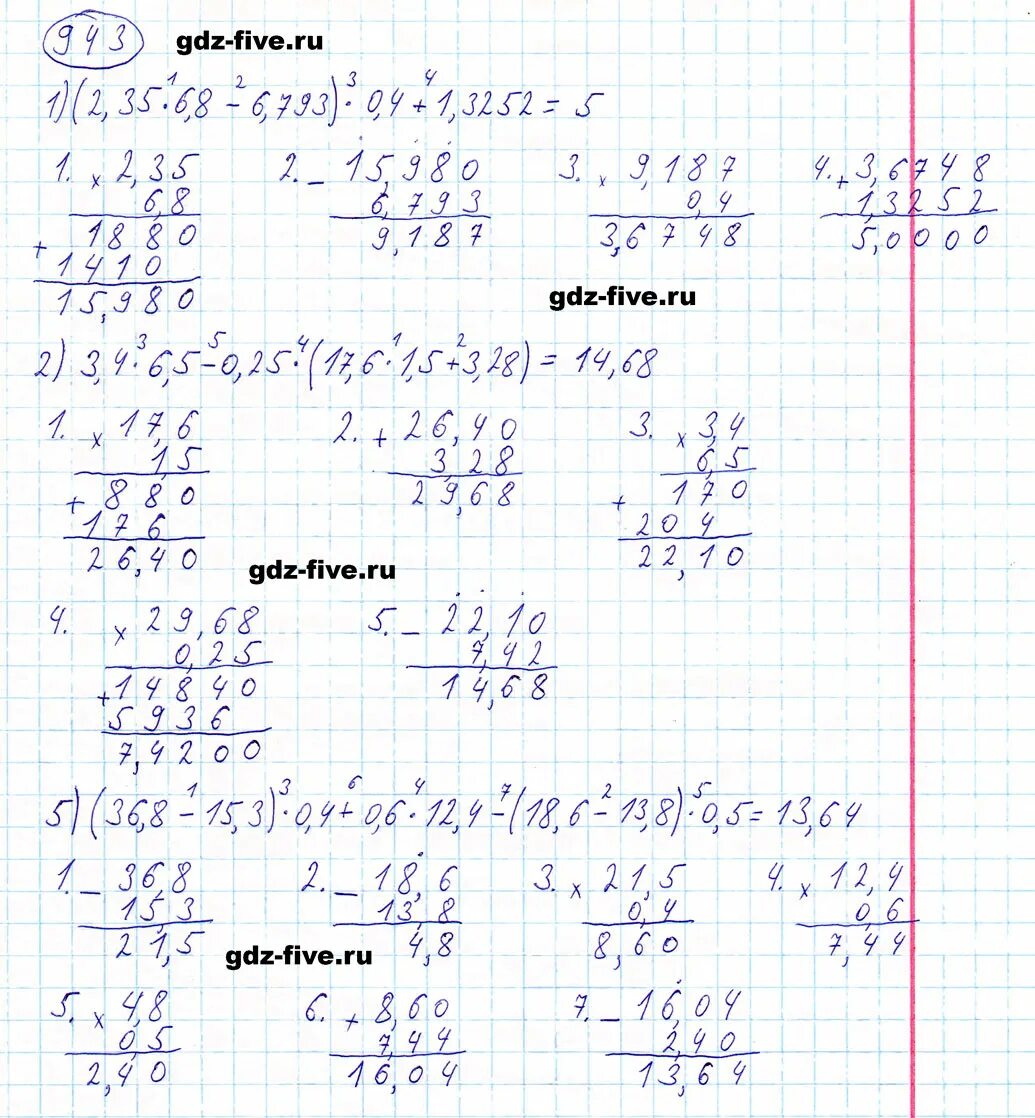 943 gdz-five.ru
1) (2,35 ·¹ 6,8 −² 6,793) ·³ 0,4 +⁴ 1,3252 = 5
1. × 2,35 2. − 15,980 3. × 9,187 4. + 3,6748
6,8 6,793 0,4 1,3252
1880 9,187 3,6748 5,0000
+ 1410
15,980 gdz-five.ru
2) 3,4 ·³ 6,5 −⁵ 0,25 ·⁴ (17,6 ·¹ 1,5 +² 3,28) = 14,68
1. × 17,6 2. + 26,40 3. × 3,4
1,5 3,28 6,5
+ 880 29,68 + 170
176 204
26,40 22,10
gdz-five.ru
4. × 29,68 5. − 22,10
0,25 7,42
+ 14840 14,68
5936
7,4200
5) (36,8 −¹ 15,3) ·³ 0,4 +⁶ 0,6 ·⁴ 12,4 −⁷ (18,6 −² 13,8) ·⁵ 0,5 = 13,64
1. − 36,8 2. − 18,6 3. × 21,5 4. × 12,4
15,3 13,8 0,4 0,6
21,5 4,8 8,60 7,44
gdz-five.ru
5. × 4,8 6. + 8,60 7. − 16,04
0,5 7,44 2,40
2,40 16,04 13,64